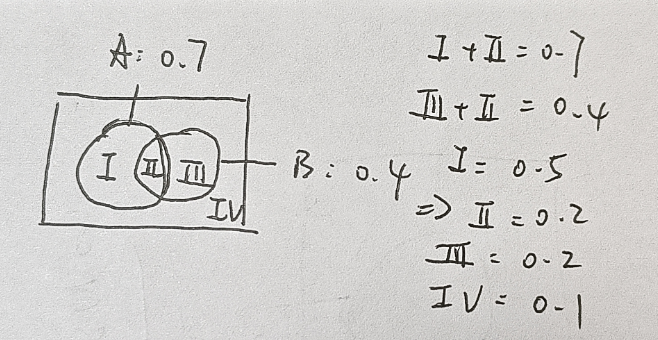 A: 0.7
I II III
IV
B: 0.4
I + II = 0.7
III + II = 0.4
I = 0.5
=> II = 0.2
III = 0.2
IV = 0.1